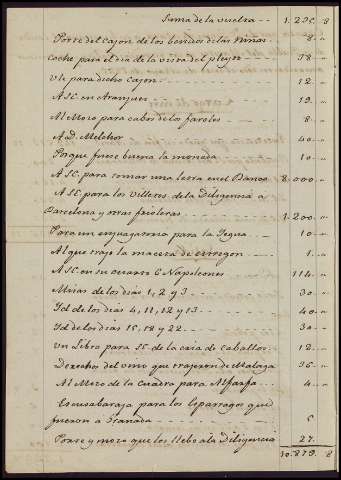 Suma de la vuelta 1.2 8
Porte del cajon de los de las Niñas 8 "
coche para el dia de la del 38 "
Vle para dicho cajon 12 "
A SE en Aranjuez 19 "
Al Mozo para cabos de los faroles 8 "
A d. Melchor 40 "
Porque fuese buena la moneda 10 "
A SE. para tomar una letra en el Banco 8.000 "
A SE. para los villetes de la Diligencia a
Barcelona y otras frioleras 1.200 "
Para un para la Yegua 10 "
Al que trajo la maceta de 1 "
A SE en su cuarto 6 Napoleones 114 "
Misas de los dias 1, 2 y 3 30 "
Yd de los dias 4, 11, 12 y 13 40 "
Yd de los dias 15, 18 y 22 30 "
Un Libro para SE. de la casa de caballos 12 "
Derechos del vino que trajeron de Malaga 36 "
Al Mozo de la Cuadra para Alfalfa 4 "
para los Esparragos que
fueron a Granada 6
Porte y mozo que los llebo a la Diligencia 27
10.879. 8